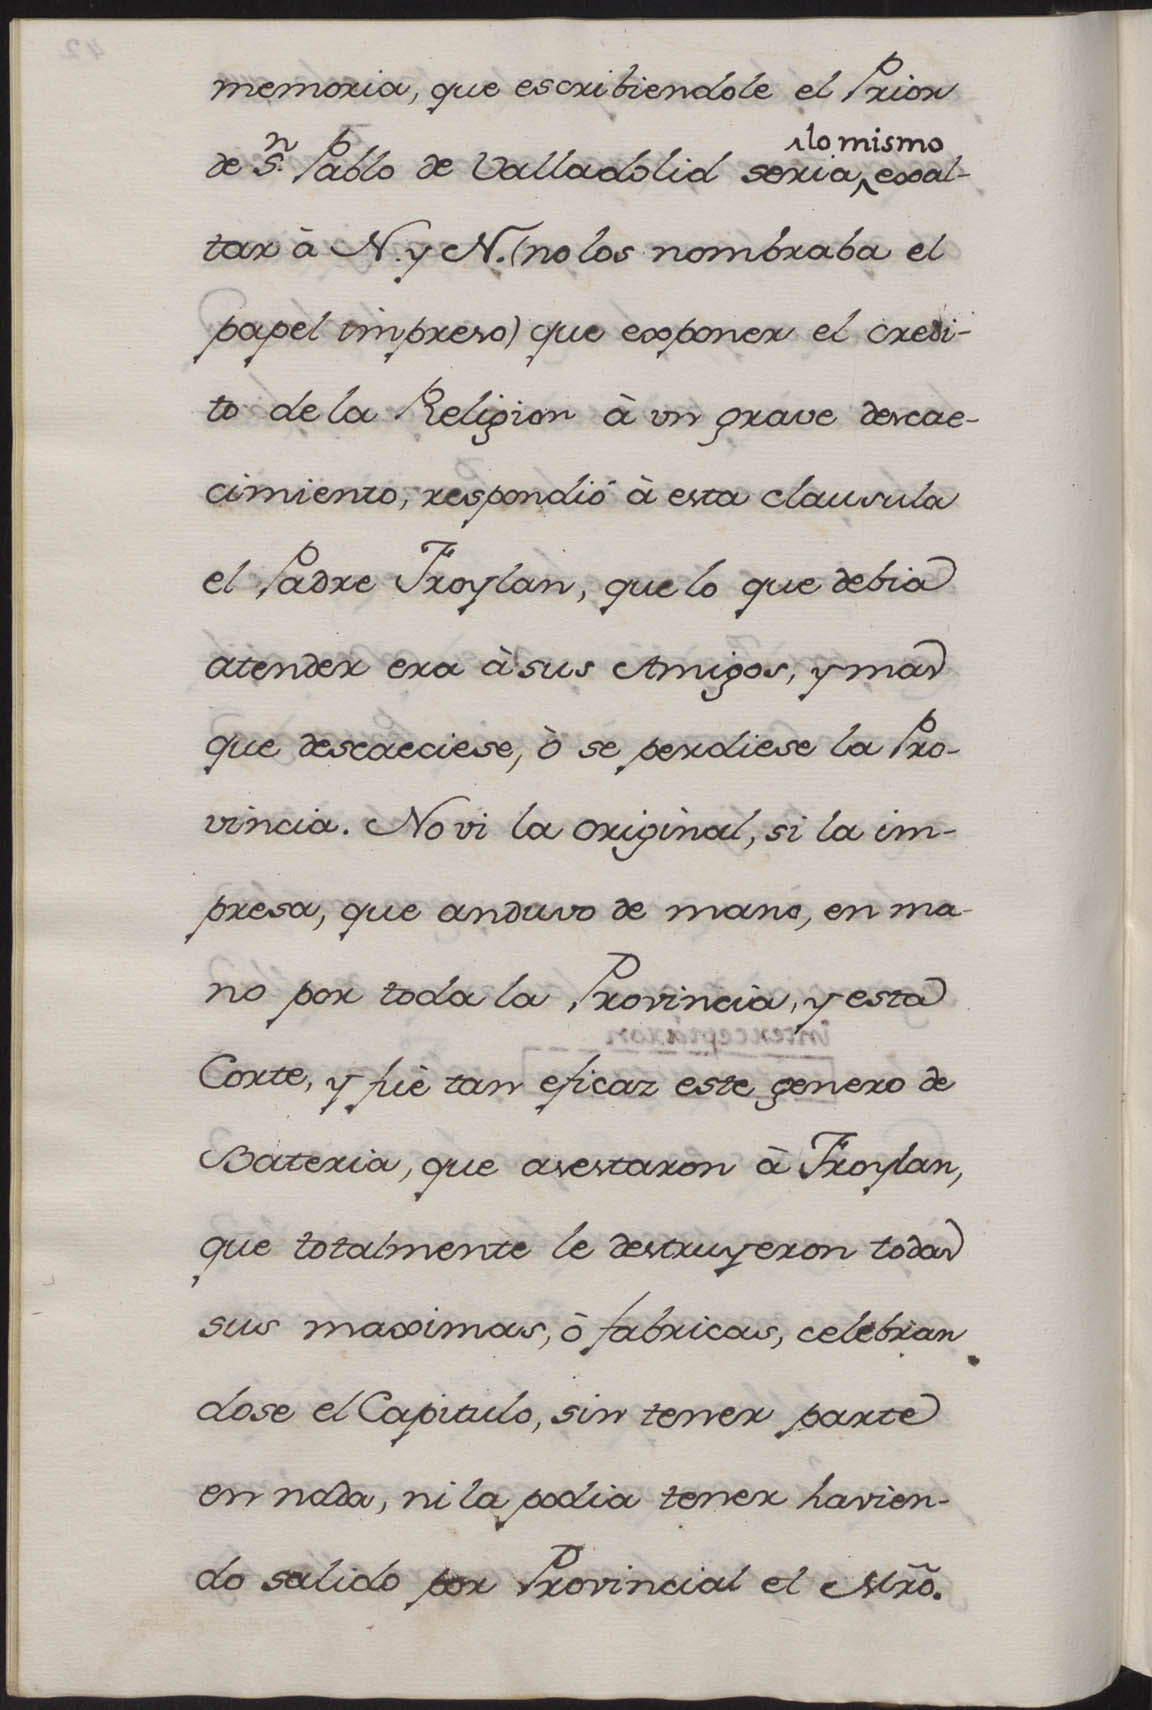 memoria, que escribiendole el Prior
de S.n Pablo de Valladolid seria ^lo mismo exal-
tar à N. y N. (no los nombraba el
papel impreso) que exponer el credi-
to de la Religion à vn grave descae-
cimiento, respondió à esta clausula
el Padre Froylan, que lo que debia
atender era à sus Amigos, y mas
que descaeciese, ò se perdiese la Pro-
vincia. No vi la original, si la im-
presa, que anduvo de mano, en ma-
no por toda la Provincia, y esta
Corte, y fuè tan eficaz este genero de
Bateria, que asestaron à Froylan,
que totalmente le destruyeron todas
sus maximas, ò fabricas, celebran
dose el Capitulo, sin tener parte
en nada, ni la podia tener havien-
do salido por Provincial el Mrõ.